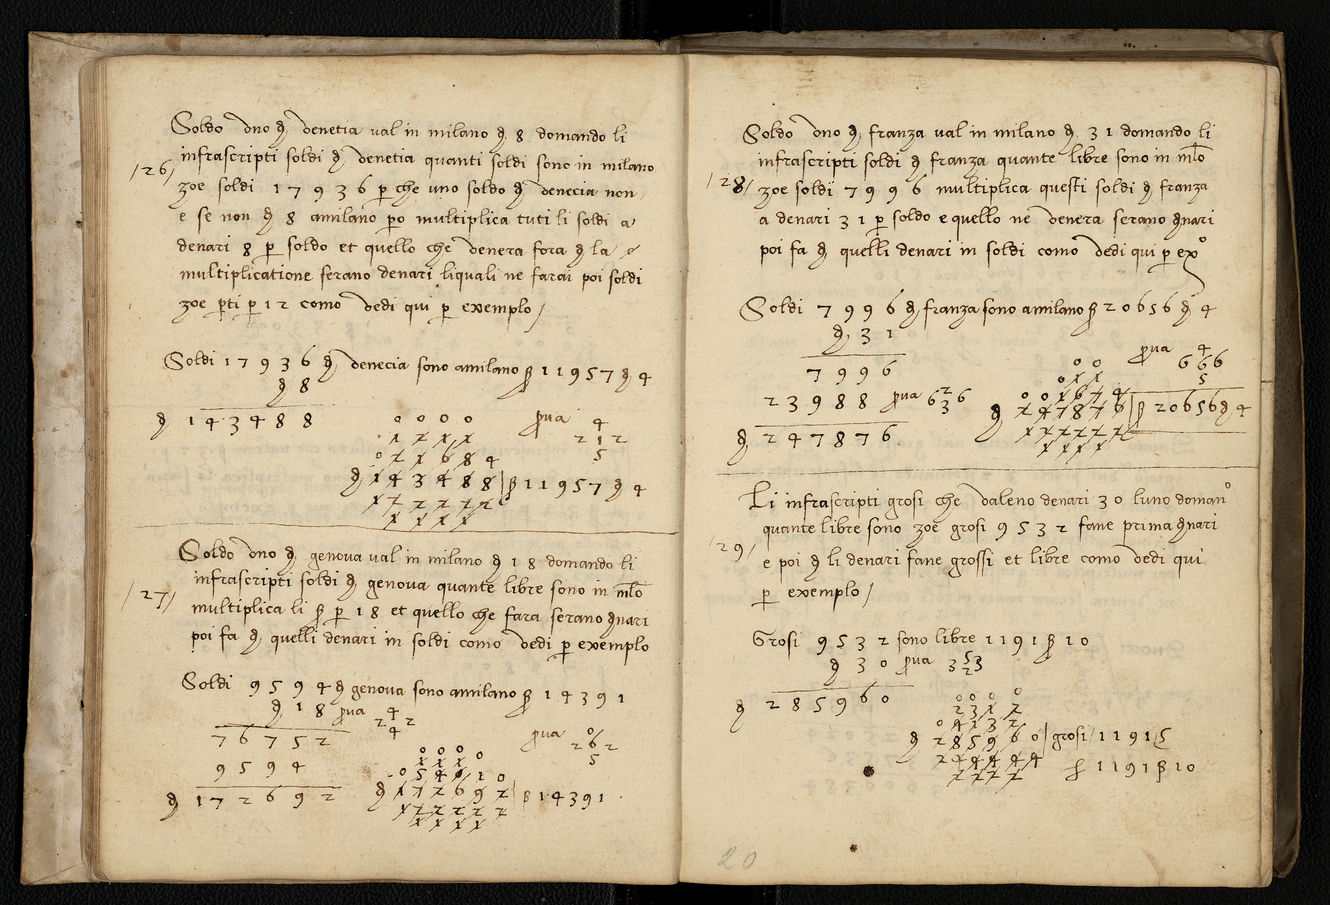 Soldo uno de venetia val in milano d 8 domando li
infrascripti soldi de venetia quanti soldi sono in milano
/26/
zoe soldi 1 7 9 3 6 p che uno soldo de venecia non
e se non d 8 amilano po multiplica tuti li soldi a
denari 8 p soldo et quello che venera fora de la
multiplicatione serano denari liquali ne farai poi soldi
zoe pti p 12 como vedi qui p exemplo /
Soldi 1 7 9 3 6 de venecia sono amilano ß 1 1 9 5 7 d 4
d 8
d 1 4 3 4 8 8
pva 4
2 1 2
5
0 0 0 0
1 2 1 1
0 2 1 6 8 4
d 1 4 3 4 8 8 | ß 1 1 9 5 7 d 4
1 2 2 2 2 2
1 1 1 1
Soldo uno de genova val in milano d 1 8 domando li
infrascripti soldi de genova quante libre sono in mlo
/27/
multiplica li ß p 1 8 et quello che fara serano denari
poi fa de quelli denari in soldi como vedi p exemplo
Soldi 9 5 9 4 de genova sono amilano ß 1 4 3 9 1
d 1 8 pva 4
2 2
4
7 6 7 5 2
9 5 9 4
d 1 7 2 6 9 2
pva 0
2 6 2
5
0 0 0
1 1 1 0
0 5 4 0 1 0
d 1 7 2 6 9 2 | ß 1 4 3 9 1
1 2 2 2 2 2
1 1 1 1
Soldo uno de franza val in milano d 3 1 domando li
infrascripti soldi de franza quante libre sono in mlo
/28/
zoe soldi 7 9 9 6 multiplica questi soldi de franza
a denari 3 1 p soldo e quello ne venera serano denari
poi fa de quelli denari in soldi como vedi qui p exo
Soldi 7 9 9 6 de franza sono amilano ß 2 0 6 5 6 d 4
d 3 1
7 9 9 6
2 3 9 8 8 pva 6 2 6
3
d 2 4 7 8 7 6
pva 4
6 6 6
5
0 0
0 1 1
0 0 1 6 7 4
d 2 4 7 8 7 6 | ß 2 0 6 5 6 d 4
1 2 2 2 2 2
1 1 1 1
Li infrascripti grosi che valeno denari 3 0 luno domano
quante libre sono zoe grosi 9 5 3 2 fane prima denari
/29/
e poi de li denari fane grossi et libre como vedi qui
p exemplo /
Grosi 9 5 3 2 sono libre 1 1 9 1 ß 1 0
d 3 0 pva 3 5 3
2
d 2 8 5 9 6 0
0 0 0
2 3 1 2
0 4 1 3 2
d 2 8 5 9 6 0 | grosi 1 1 9 1 5
2 4 4 4 4 4
2 2 2 2
£ 1 1 9 1 ß 1 0
20